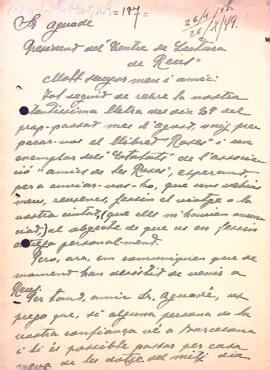 Sr Aguadé =187=
President del "Centre de Lectura
de Reus"
Molt senyor meu i amic:
Tot seguit de rebre la nostra
atentíssima lletra del dia 28 del
prop-passat mes d'agost, vaig pre
parar-vos el llibret "Roses" i un
exemplar dels "Estatuts" de l'Associa
ció "Amics de les Roses", esperant,
per a enviar-vos-ho, que uns nebots
meus, reusencs, fessin el viatge a la
vostra ciutat, (que ells m'havien anun
ciat,) el objecte de que us en fessin
personalment.
Pero, ara, em comuniquen que de
moment han desistid de venir a
Reus.
Per tant, amic Sr. Aguadé, us
prego que, si alguna persona de la
vostra confiança ve a Barcelona
i li és possible passar per casa
meva de les dotze del mitj dia